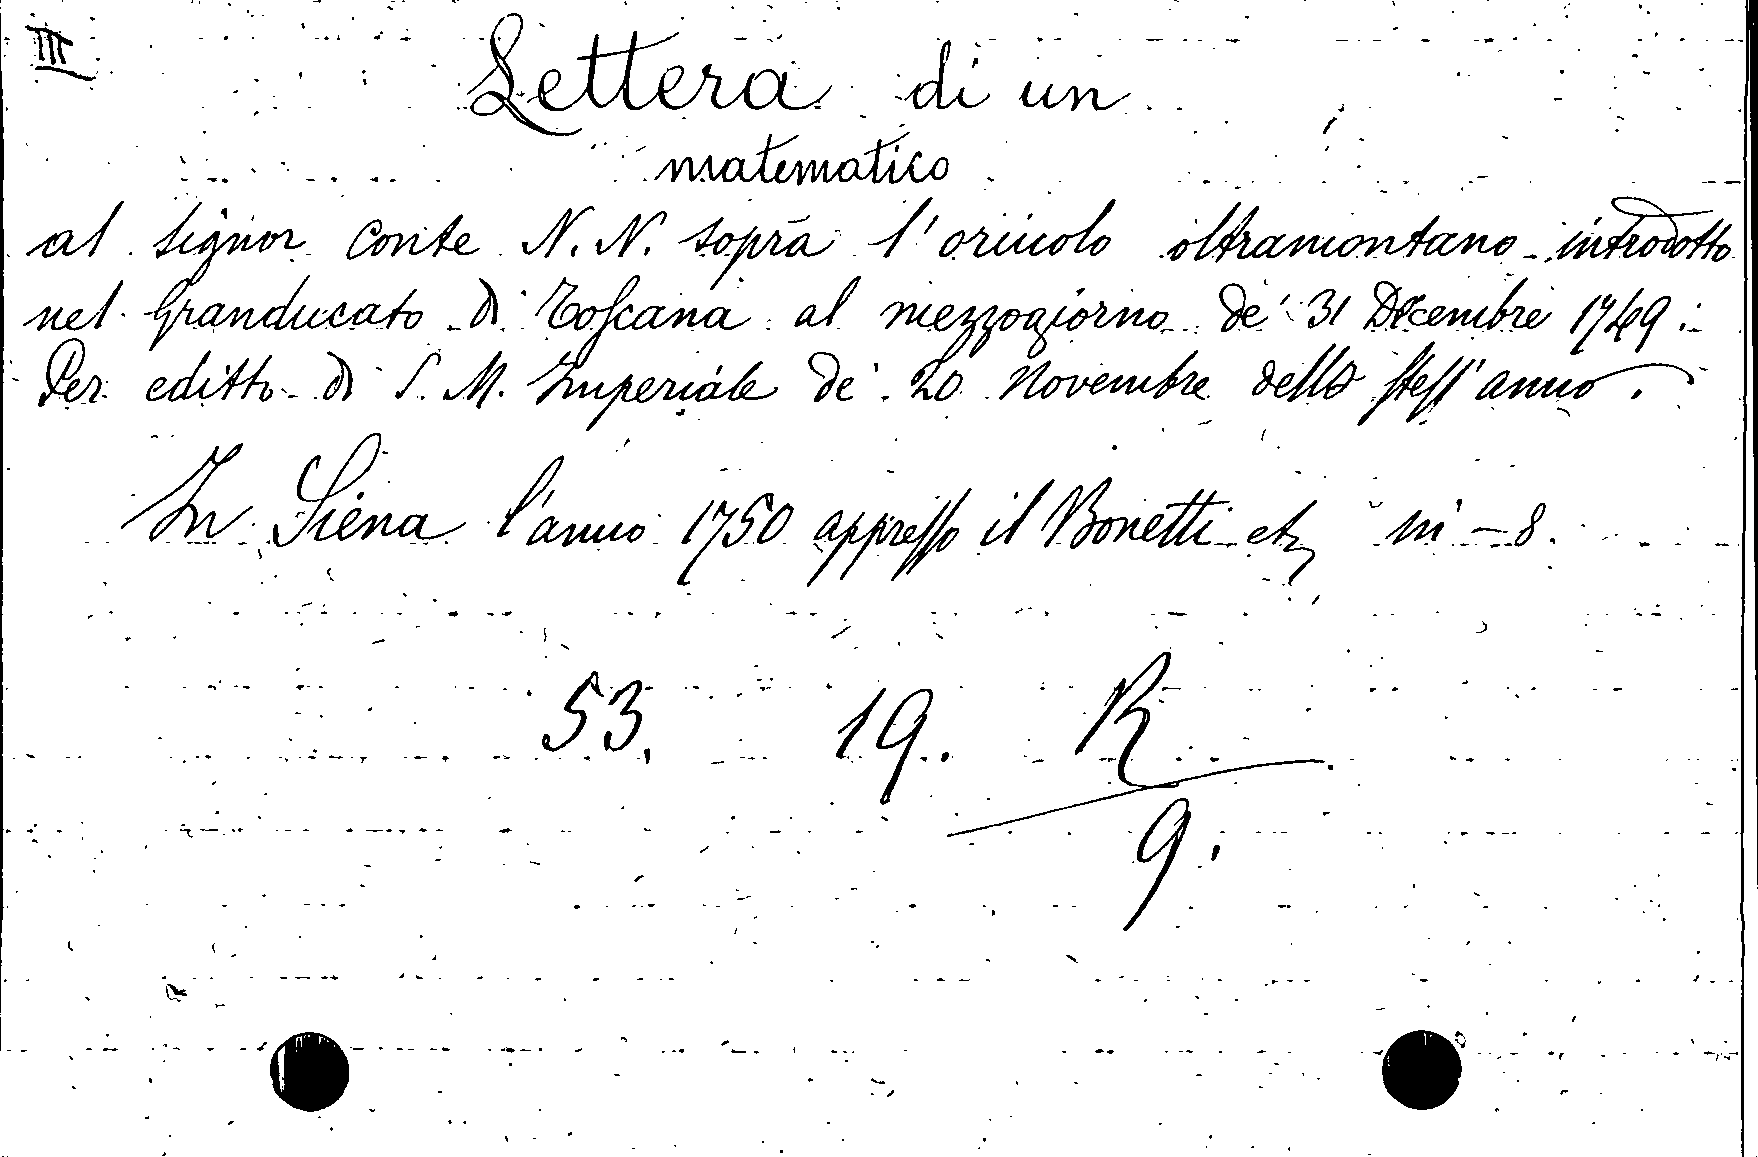 III
Lettera di un
matematico
al signor conte N. N. sopra l'oriuolo oltramontano introdotto
nel Granducato di Toscana al mezzogiorno de' 31 Decembre 1749:
Per editto di S. M. Imperiale de' 20 Novembre dello stess'anno.
In Siena l'anno 1750 appresso il Bonetti etz in - 8.
53. 19. R
9.